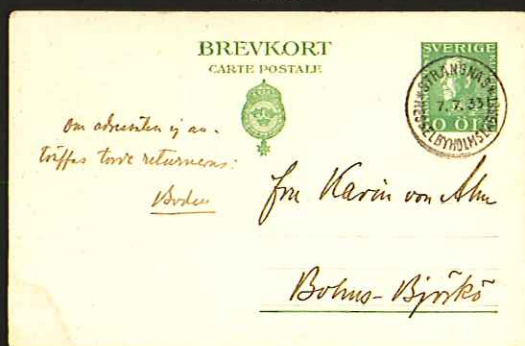 BREVKORT
CARTE POSTALE
SVERIGE
STRÄNGNÄS
7.7.33
10 ÖRE
om adressaten ej an-
träffas torde returneras:
Boden
Fru Karin von Alm
Bohus-Björkö